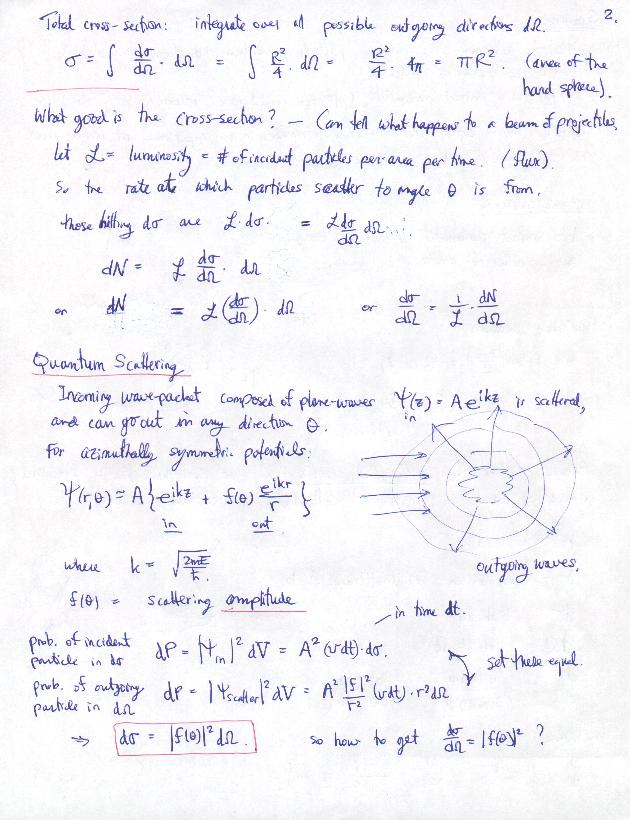 2.
Total cross-section: integrate over all possible outgoing directions dΩ.
σ = ∫ dσ/dΩ · dΩ = ∫ R²/4 · dΩ = R²/4 · 4π = πR². (area of the
hard sphere).
What good is the cross-section? — Can tell what happens to a beam of projectiles.
Let ℒ = luminosity = # of incident particles per area per time. (flux).
So the rate at which particles scatter to angle θ is from.
those hitting dσ are ℒ·dσ. = ℒ dσ/dΩ dΩ...
dN = ℒ dσ/dΩ · dΩ
or dN = ℒ (dσ/dΩ) · dΩ or dσ/dΩ = 1/ℒ · dN/dΩ
Quantum Scattering
Incoming wave-packet composed of plane-waves Ψ(z) = A e^{ikz} is scattered,
in
and can go out in any direction θ.
For azimuthally symmetric potentials:
Ψ(r,θ) ≈ A { e^{ikz} + f(θ) e^{ikr}/r }
in out
where k = √(2mE/ħ).
outgoing waves.
f(θ) = scattering amplitude
in time dt.
prob. of incident
particle in dσ dP = |Ψin|² dV = A² (vdt)·dσ.
set these equal.
prob. of outgoing
particle in dΩ dP = |Ψscatter|² dV = A² |f|²/r² (vdt)·r²dΩ
⇒ dσ = |f(θ)|² dΩ. so how to get dσ/dΩ = |f(θ)|² ?